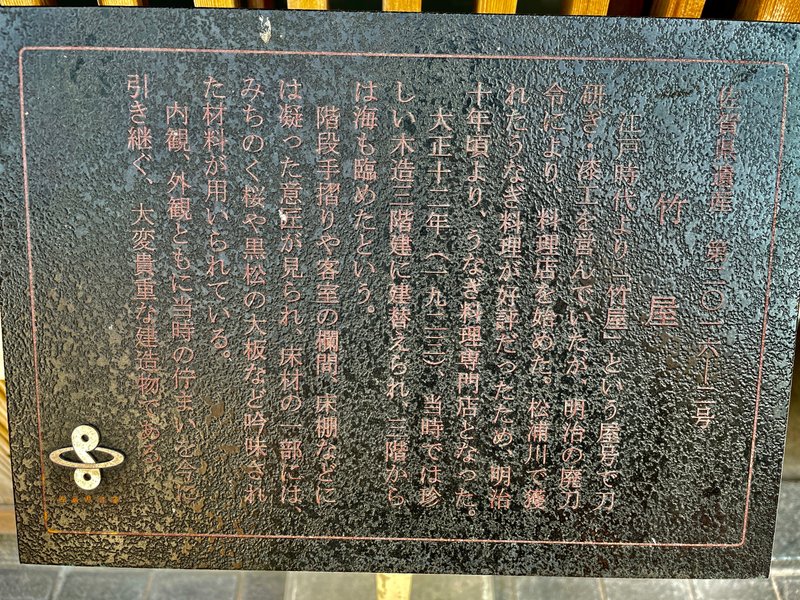 佐賀県遺産 第二〇一六―二号
竹屋
江戸時代より「竹屋」という屋号で刀
研ぎ・漆工を営んでいたが、明治の廃刀
令により、料理店を始めた。松浦川で獲
れたうなぎ料理が好評だったため、明治
十年頃より、うなぎ料理専門店となった。
大正十二年（一九二三）、当時では珍
しい木造三階建に建替えられ、三階から
は海も臨めたという。
階段手摺りや客室の欄間、床棚などに
は凝った意匠が見られ、床材の一部には、
みちのく桜や黒松の大板など吟味され
た材料が用いられている。
内観、外観ともに当時の佇まいを今に
引き継ぐ、大変貴重な建造物である。